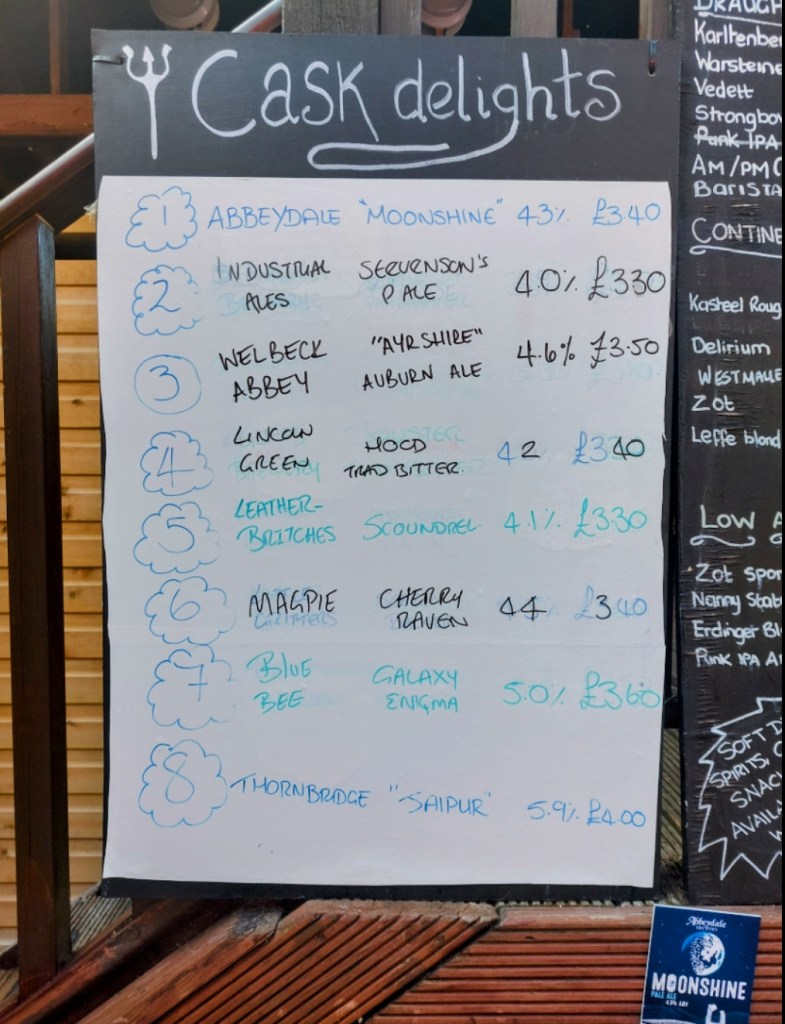 Cask delights
1 ABBEYDALE "MOONSHINE" 43% £3.40
2 INDUSTRIAL ALES STEVENSON'S PALE 4.0% £330
3 WELBECK ABBEY "AYRSHIRE" AUBURN ALE 4.6% £3.50
4 LINCOLN GREEN HOOD TRAD BITTER 42 £340
5 LEATHER-BRITCHES SCOUNDREL 4.1% £3.30
6 MAGPIE CHERRY RAVEN 44 £340
7 BLUE BEE GALAXY ENIGMA 5.0% £360
8 THORNBRIDGE "JAIPUR" 5.9% £4.00
DRAUGH
Karltenbe
Warsteine
Vedett
Strongbo
Punk IPA
AM/PM
BARISTA
CONTINE
Kasteel Roug
Delirium
WESTMALLE
Zot
Leffe blond
LOW A
Zot Spor
Nanny Stat
Erdinger Bl
Punk IPA A
SOFT D
SPIRITS,
SNAC
AVAILA
Abbeydale
MOONSHINE
PALE ALE
4.3% ABV